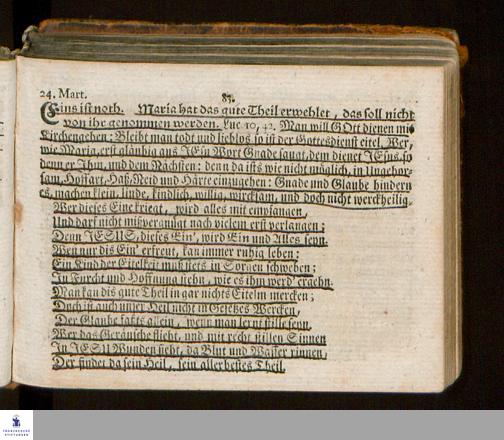 24. Mart.
87.
Eins ist noth. Maria hat das gute Theil erwehlet, das soll nicht
von ihr genommen werden. Luc. 10, 42. Man will GOtt dienen mit
Kirchengehen: Bleibt man todt und lieblos, so ist der Gottesdienst eitel. Wer,
wie Maria, erst gläubig aus JEsu Wort Gnade saugt, dem dienet JEsus, so
denn er Ihm, und dem Nächsten: denn da ists wie nicht möglich, in Ungehor-
sam, Hoffart, Haß, Neid und Härte einzugehen: Gnade und Glaube hindern
es, machen klein, linde, kindlich, willig, wircksam, und doch nicht werckheilig.
Wer dieses Eine kriegt, wird alles mit empfangen,
Und darf nicht mißvergnügt nach vielem erst verlangen;
Denn JESUS, dieses Ein', wird Ein und Alles seyn.
Wen nur dis Ein' erfreut, kan immer ruhig leben;
Ein Kind der Eitelkeit muß stets in Sorgen schweben;
In Furcht und Hoffnung stehn, wie es ihm werd' ergehn.
Man kan dis gute Theil in gar nichts Eitelm mercken;
Doch ist auch unser Heil nicht in Gesetzes Wercken,
Der Glaube faßts allein, wenn man lernt stille seyn,
Wer das Geräusche flieht, und mit recht stillen Sinnen
In JESU Wunden sieht, da Blut und Wasser rinnen,
Der findet da sein Heil, sein allerbestes Theil.